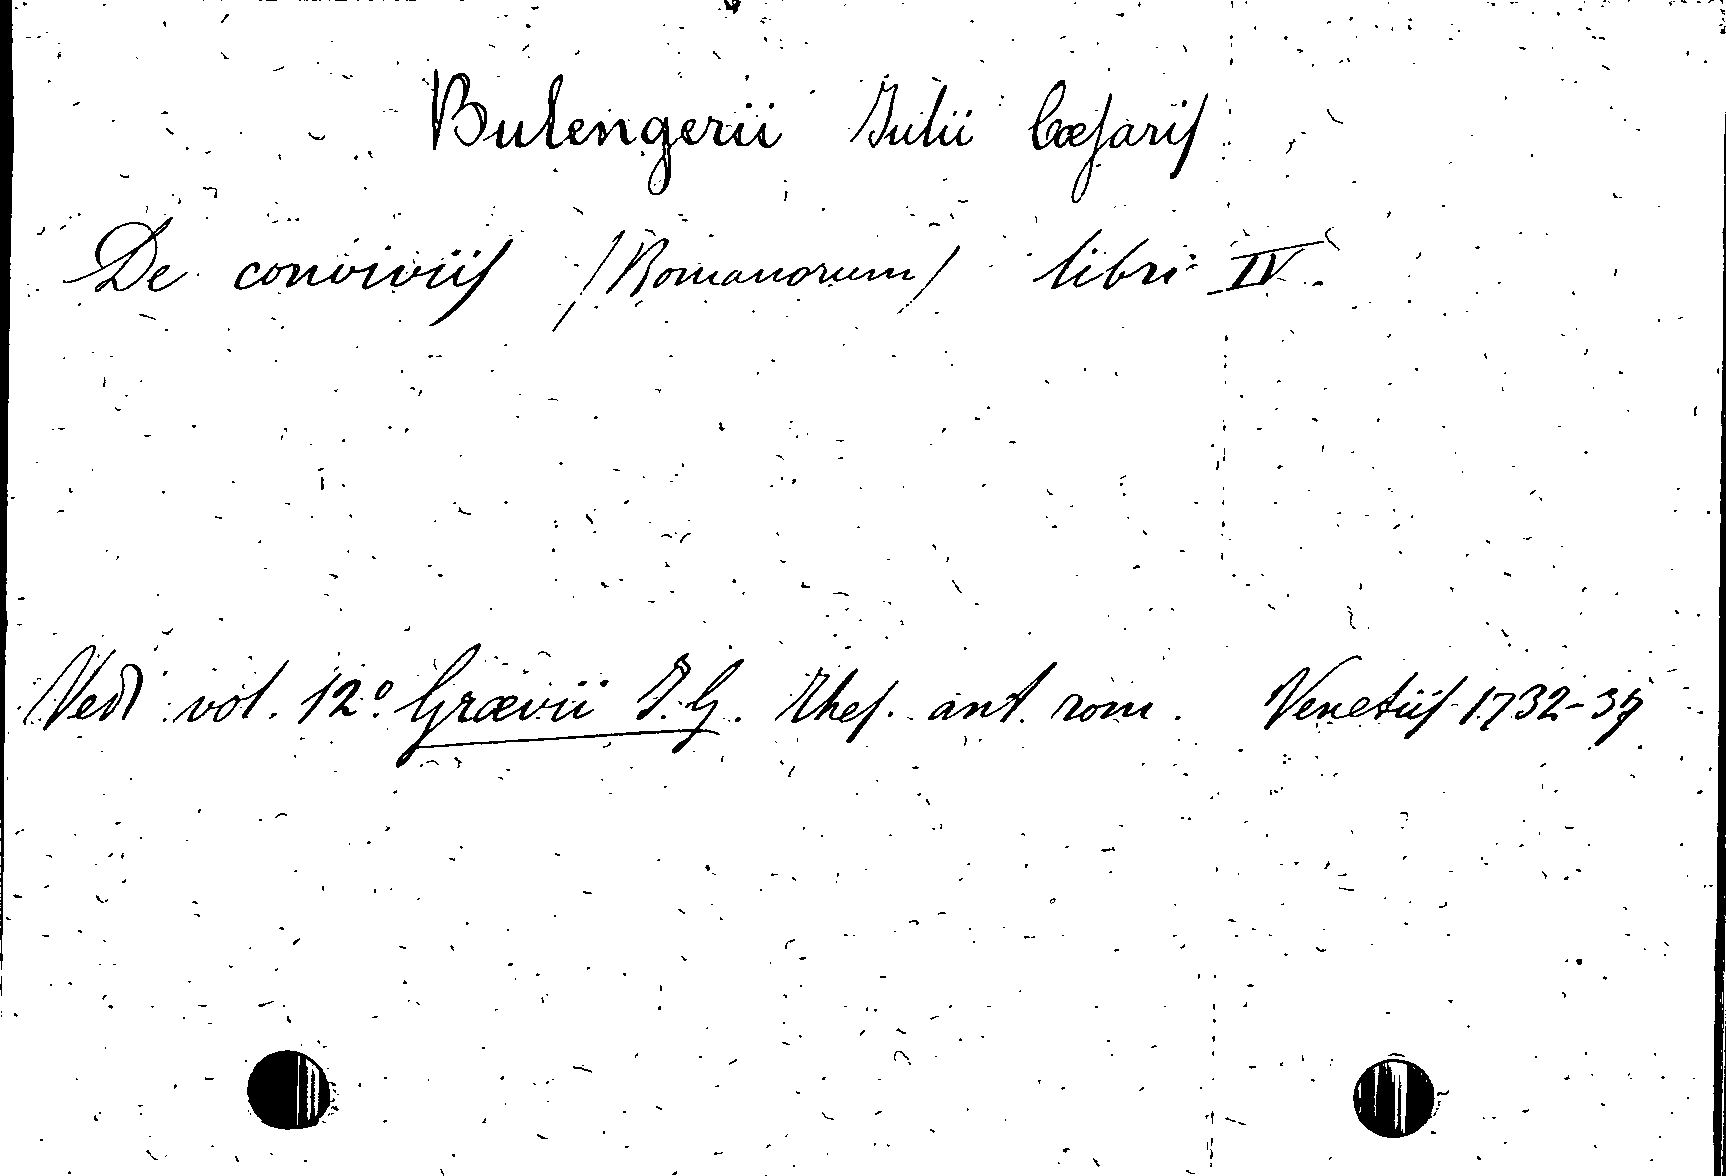 Bulengerii Julii Cæsaris
De conviviis /Romanorum/ libri IV.
Vedi vol. 12° Grævii J. G. Thes. ant. rom. Venetiis 1732-37